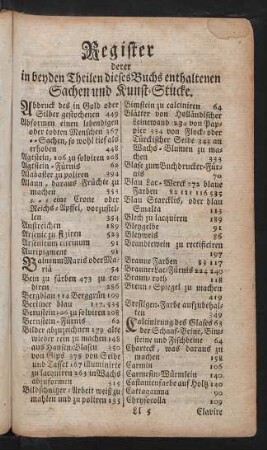 Register
derer
in beyden Theilen dieses Buchs enthaltenen
Sachen und Kunst-Stücke.
Abdruck des in Gold oder
Silber gestochenen 449
Abformen einen lebendigen
oder todten Menschen 267
-- Sachen, so wohl tief als
erhoben 448
Agtstein, 206 zu solviren 208
Agtstein-Fürnis 68
Alabaster zu poliren 394
Alaun, daraus Früchte zu
machen 353
-- -- eine Crone oder
Reichs-Apffel, vorzustel-
len 354
Austreichen 89
Arsenic zu fixiren
Arsenicum citrinum 91
Auripigment 91
Balsamum Maris oder Ma-
ria 51
Bein zu färben 473 zu
Bergblau 114 Berggrün 109
Berliner blau 117. 555
Bernstein 206 zu solviren 208
Bernstein-Fürnis 68
Bilder abzuziehen 179 alte
wieder rein zu machen 248
aus Hausen-Blasen 350
von Gips 378 von Seide
und Taffet 167 illuminirte
zu lacquiren 263 in Wachs
abzuformen 315
Bildschnitzer-Arbeit weiß zu
mahlen und zu poliren 135
Bimstein zu calciniren 64
Blätter von Holländischer
Leinewand 294 von Pap-
pier 334 von Flock-oder
Türckischer Seide 342 an
Wachs-Blumen zu ma-
chen 333
Blase zum Buchdrucker-Fürnis
70
Blau Lac-Werck 272 blaue
Farben
Blau Starcklis, oder blau
Smalta 113
Blech zu lacquiren 189
Bleygelbe 91
Bleyweis 96
Brandtewein zu rectificiren
197
Braune Farben 117
Brauner Lac-Fürnis 224 240
Braun-roth 118
Brenn-Spiegel zu machen
419
Bresilgen-Farbe aufzubehal-
ten 349
Calcinirung des Glases 63
der Schaaf-Beine, Bim-
steine und Fischbeine 64
Charteck, was daraus zu
machen 158
Carmin 106
Carmesin-Würmlein 140
Castanienfarbe auf Holtz 140
Cattagamna 90
Chrysorolla 109
Ll 5
Clavire